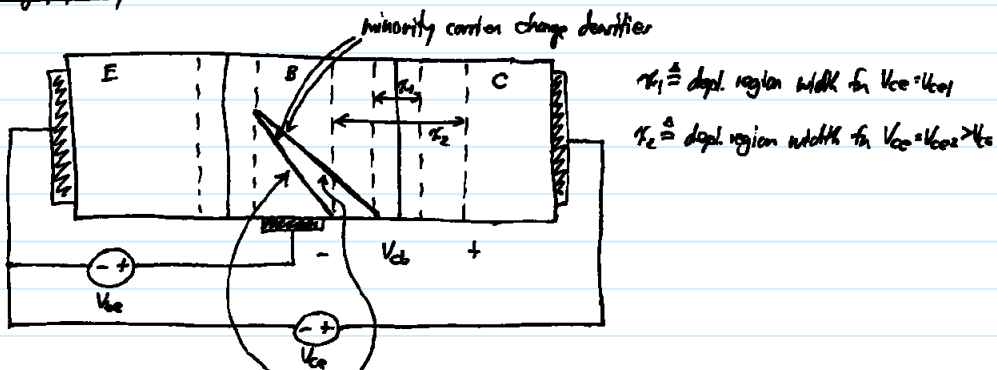 minority carrier charge densities
E B C
x₁
x₂
x₁ ≜ depl. region width for Vce=Vce1
x₂ ≜ depl. region width for Vce=Vce2>Vce
- Vcb +
- +
Vbe
- +
Vce